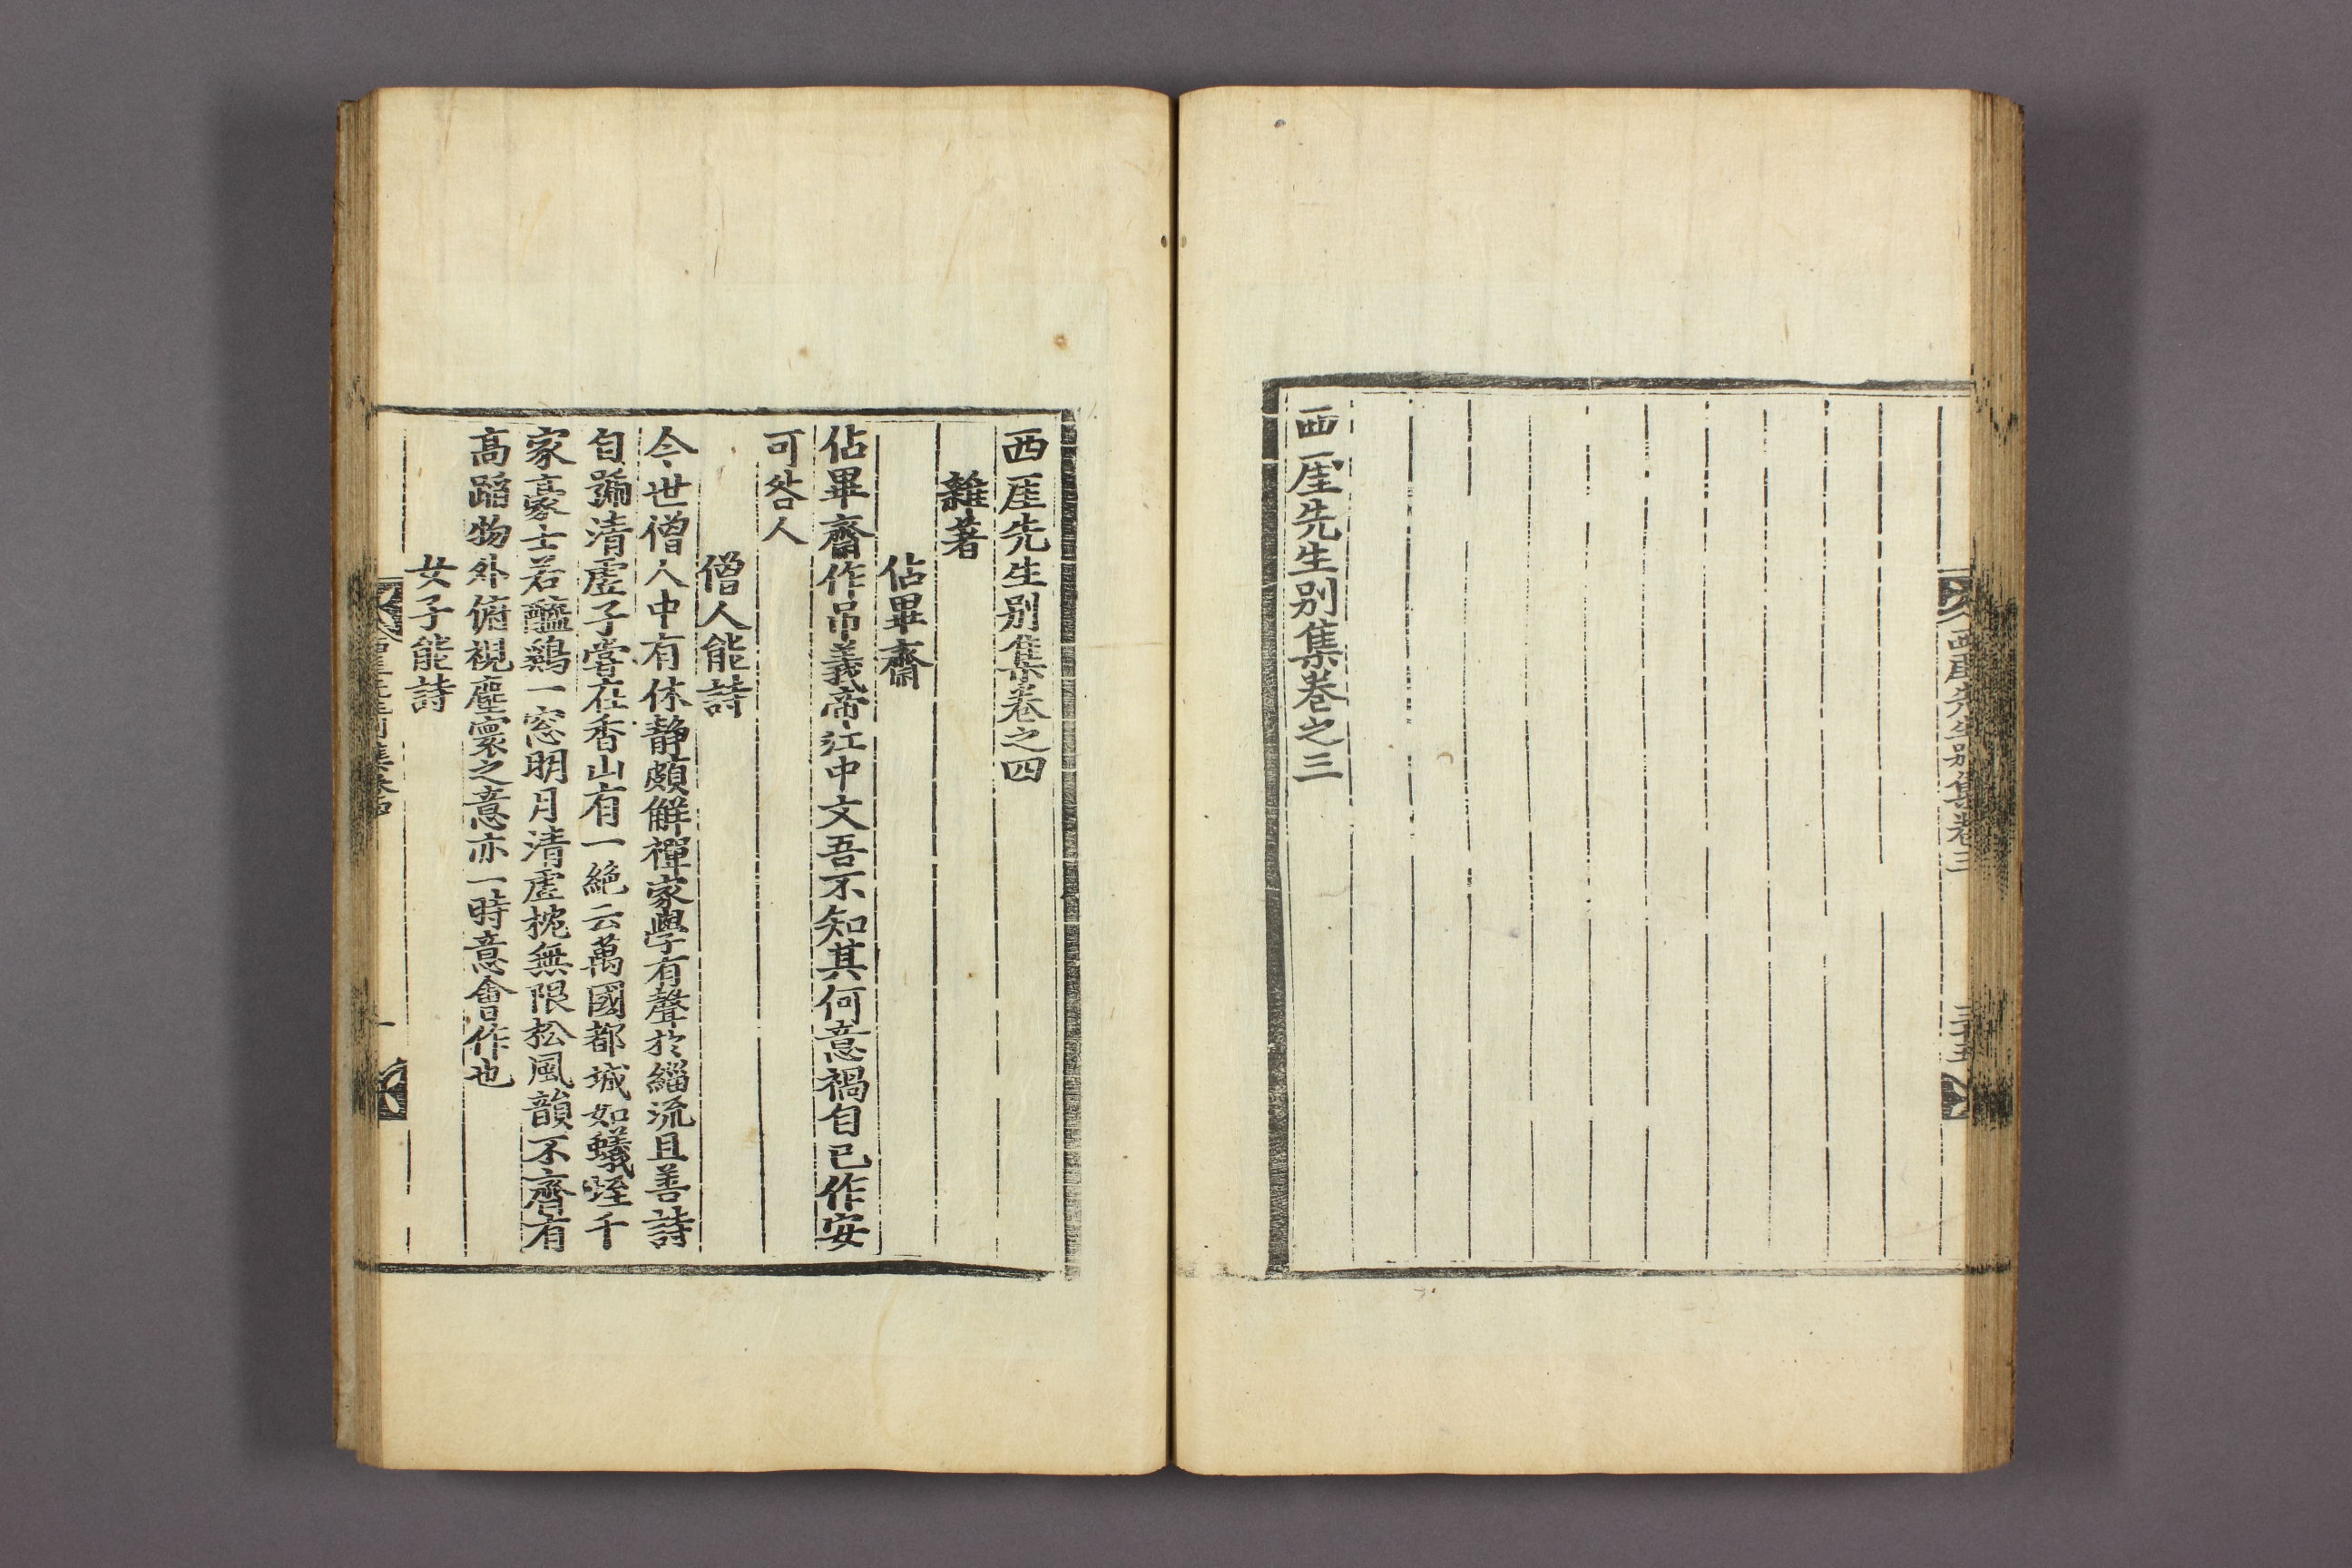 西厓先生别集卷三
三十五
西厓先生别集卷之三
西厓先生别集卷之四
雜著
佔畢齋
佔畢齋作吊義帝江中文吾不知其何意禍自已作安
可咎人
僧人能詩
今世僧人中有休静頗解禪家學有聲於緇流且善詩
自號清虛子嘗在香山有一絶云萬國都城如蟻蛭千
家豪士若醯鷄一窓明月清虛枕無限松風韻不齊有
高蹈物外俯視塵寰之意亦一時意會作也
女子能詩
一